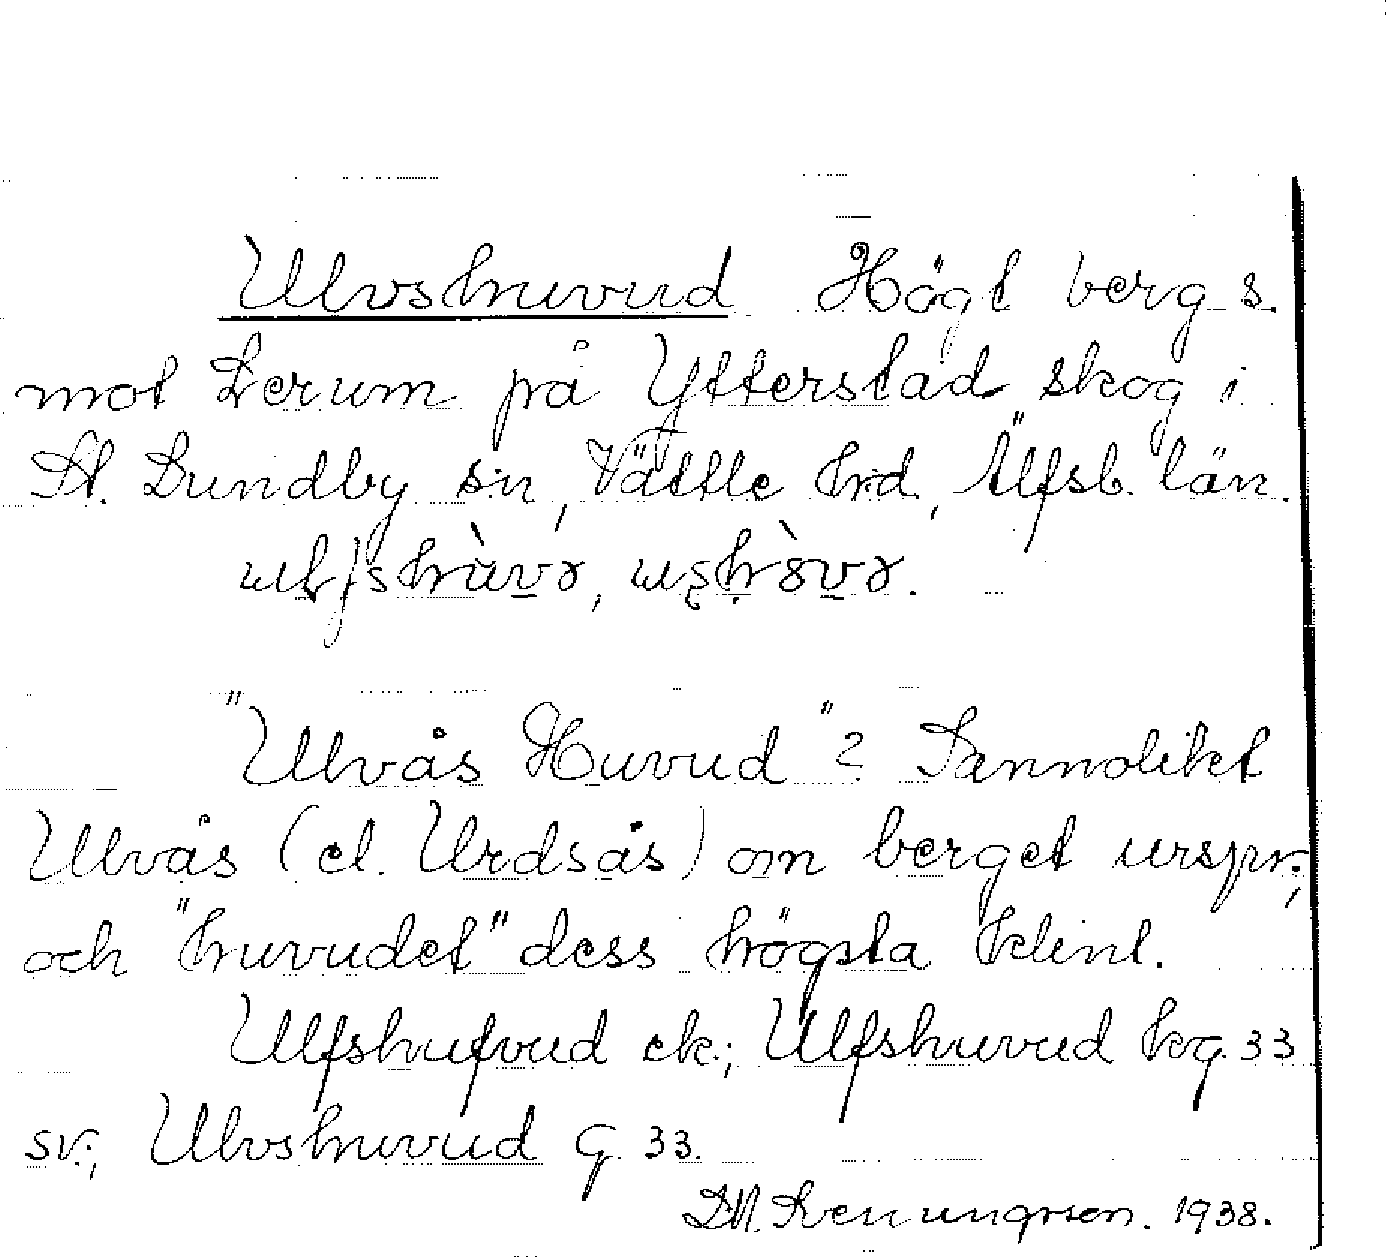 Ulvshuvud Högt berg s.
mot Lerum på Ytterstad skog i
St. Lundby sn, Vättle hrd, Älfsb. län.
"Ulvås Huvud"? Sannolikt
Ulvås (el. Urdsås) om berget urspr.,
och "huvudet" dess högsta klint.
Ulfshufvud ek.; Ulfshuvud kg. 33
sv.; Ulvshuvud G. 33.
1938.